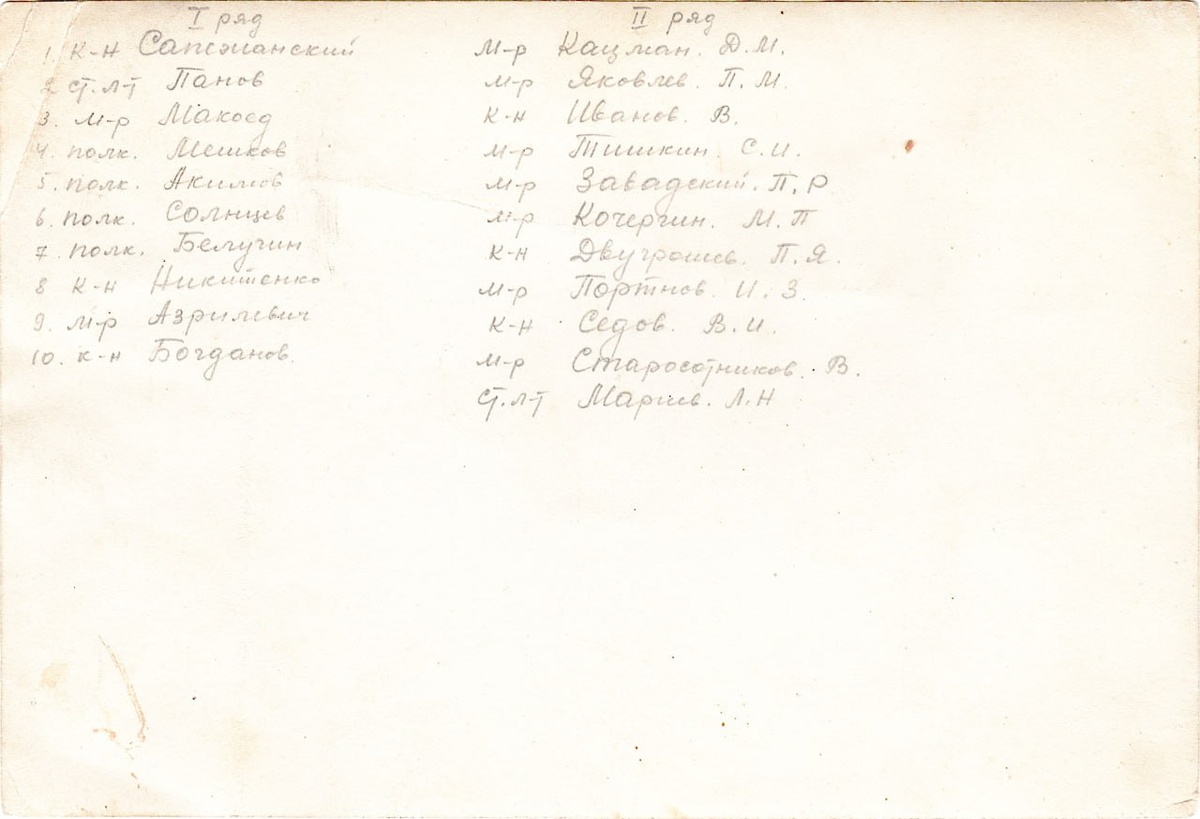 I ряд
1. к-н Сапежанский
2. ст. л-т Панов
3. м-р Макоед
4. полк. Мешков
5. полк. Акимов
6. полк. Солнцев
7. полк. Белугин
8 к-н Никитенко
9. м-р Азрилевич
10. к-н Богданов.
II ряд
м-р Кацман. Д.М.
м-р Яковлев. П.М.
к-н Иванов. В.
м-р Тишкин С.И.
м-р Завадский. П.Р.
м-р Кочергин. М.П
к-н Двуграшев. П.Я.
м-р Портнов. И.З.
к-н Седов. В.И.
м-р Старосотников. В.
ст. л-т Марьев. Л.Н